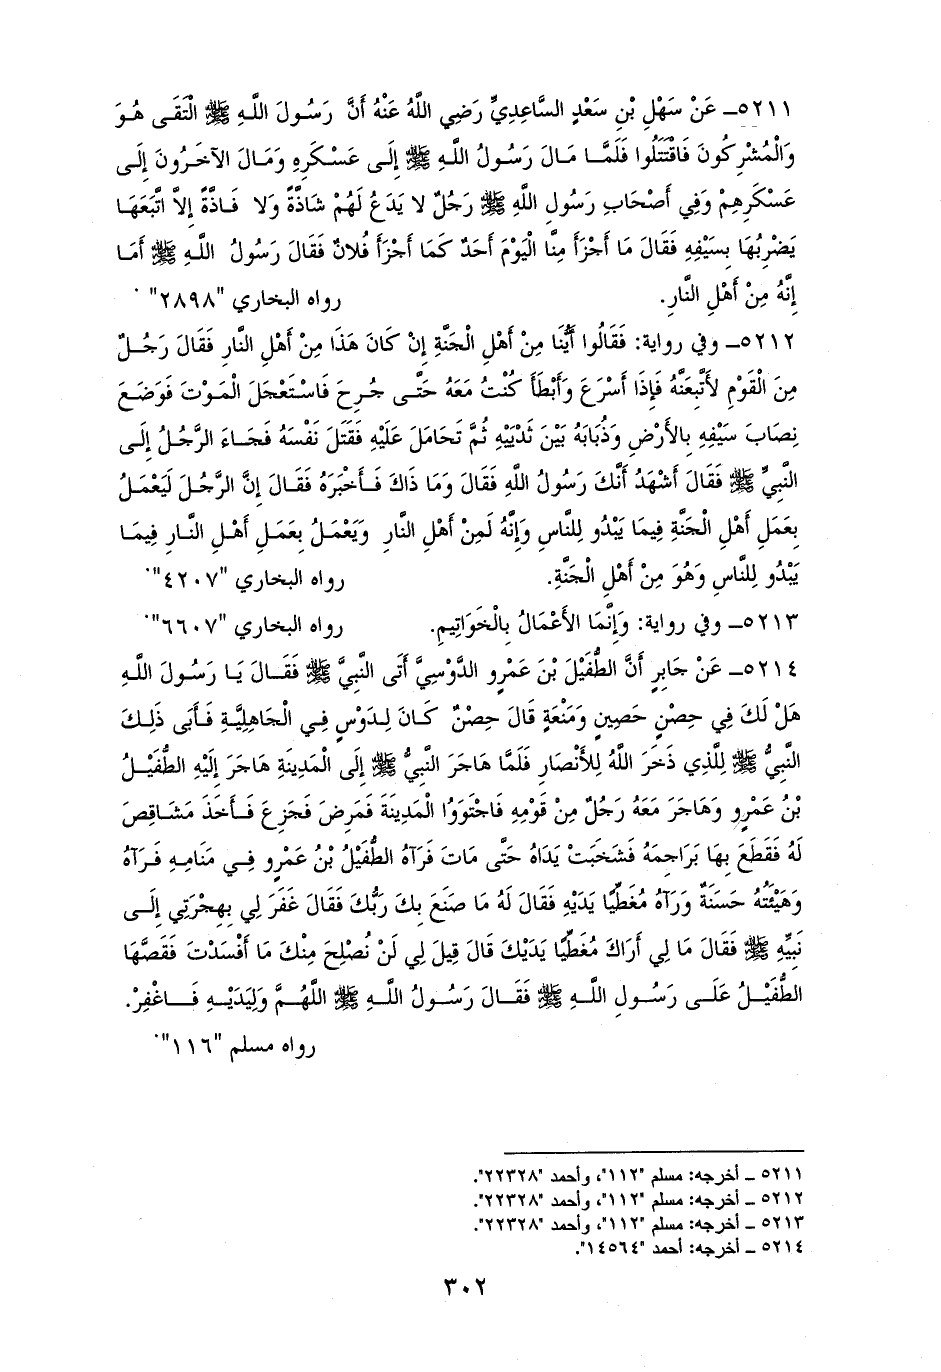 ٥٢١١ـ عَنْ سَهْلِ بْنِ سَعْدٍ السَّاعِدِيِّ رَضِي اللَّهُ عَنْهُ أَنَّ رَسُولَ اللَّهِ ﷺ الْتَقَى هُوَ
وَالْمُشْرِكُونَ فَاقْتَتَلُوا فَلَمَّا مَالَ رَسُولُ اللَّهِ ﷺ إِلَى عَسْكَرِهِ وَمَالَ الآخَرُونَ إِلَى
عَسْكَرِهِمْ وَفِي أَصْحَابِ رَسُولِ اللَّهِ ﷺ رَجُلٌ لا يَدَعُ لَهُمْ شَاذَّةً وَلا فَاذَّةً إِلاَّ اتَّبَعَهَا
يَضْرِبُهَا بِسَيْفِهِ فَقَالَ مَا أَجْزَأَ مِنَّا الْيَوْمَ أَحَدٌ كَمَا أَجْزَأَ فُلانٌ فَقَالَ رَسُولُ اللَّهِ ﷺ أَمَا
إِنَّهُ مِنْ أَهْلِ النَّارِ. رواه البخاري "٢٨٩٨".
٥٢١٢ـ وفي رواية: فَقَالُوا أَيُّنَا مِنْ أَهْلِ الْجَنَّةِ إِنْ كَانَ هَذَا مِنْ أَهْلِ النَّارِ فَقَالَ رَجُلٌ
مِنَ الْقَوْمِ لأَتَّبِعَنَّهُ فَإِذَا أَسْرَعَ وَأَبْطَأَ كُنْتُ مَعَهُ حَتَّى جُرِحَ فَاسْتَعْجَلَ الْمَوْتَ فَوَضَعَ
نِصَابَ سَيْفِهِ بِالأَرْضِ وَذُبَابَهُ بَيْنَ ثَدْيَيْهِ ثُمَّ تَحَامَلَ عَلَيْهِ فَقَتَلَ نَفْسَهُ فَجَاءَ الرَّجُلُ إِلَى
النَّبِيِّ ﷺ فَقَالَ أَشْهَدُ أَنَّكَ رَسُولُ اللَّهِ فَقَالَ وَمَا ذَاكَ فَأَخْبَرَهُ فَقَالَ إِنَّ الرَّجُلَ لَيَعْمَلُ
بِعَمَلِ أَهْلِ الْجَنَّةِ فِيمَا يَبْدُو لِلنَّاسِ وَإِنَّهُ لَمِنْ أَهْلِ النَّارِ وَيَعْمَلُ بِعَمَلِ أَهْلِ النَّارِ فِيمَا
يَبْدُو لِلنَّاسِ وَهُوَ مِنْ أَهْلِ الْجَنَّةِ. رواه البخاري "٤٢٠٧".
٥٢١٣ـ وفي رواية: وَإِنَّمَا الأَعْمَالُ بِالْخَوَاتِيمِ. رواه البخاري "٦٦٠٧".
٥٢١٤ـ عَنْ جَابِرٍ أَنَّ الطُّفَيْلَ بْنَ عَمْرٍو الدَّوْسِيَّ أَتَى النَّبِيَّ ﷺ فَقَالَ يَا رَسُولَ اللَّهِ
هَلْ لَكَ فِي حِصْنٍ حَصِينٍ وَمَنْعَةٍ قَالَ حِصْنٌ كَانَ لِدَوْسٍ فِي الْجَاهِلِيَّةِ فَأَبَى ذَلِكَ
النَّبِيُّ ﷺ لِلَّذِي ذَخَرَ اللَّهُ لِلأَنْصَارِ فَلَمَّا هَاجَرَ النَّبِيُّ ﷺ إِلَى الْمَدِينَةِ هَاجَرَ إِلَيْهِ الطُّفَيْلُ
بْنُ عَمْرٍو وَهَاجَرَ مَعَهُ رَجُلٌ مِنْ قَوْمِهِ فَاجْتَوَوُا الْمَدِينَةَ فَمَرِضَ فَجَزِعَ فَأَخَذَ مَشَاقِصَ
لَهُ فَقَطَعَ بِهَا بَرَاجِمَهُ فَشَخَبَتْ يَدَاهُ حَتَّى مَاتَ فَرَآهُ الطُّفَيْلُ بْنُ عَمْرٍو فِي مَنَامِهِ فَرَآهُ
وَهَيْئَتُهُ حَسَنَةٌ وَرَآهُ مُغَطِّيًا يَدَيْهِ فَقَالَ لَهُ مَا صَنَعَ بِكَ رَبُّكَ فَقَالَ غَفَرَ لِي بِهِجْرَتِي إِلَى
نَبِيِّهِ ﷺ فَقَالَ مَا لِي أَرَاكَ مُغَطِّيًا يَدَيْكَ قَالَ قِيلَ لِي لَنْ نُصْلِحَ مِنْكَ مَا أَفْسَدْتَ فَقَصَّهَا
الطُّفَيْلُ عَلَى رَسُولِ اللَّهِ ﷺ فَقَالَ رَسُولُ اللَّهِ ﷺ اللَّهُمَّ وَلِيَدَيْهِ فَاغْفِرْ.
رواه مسلم "١١٦".
٥٢١١ ـ أخرجه: مسلم "١١٢"، وأحمد "٢٢٣٢٨".
٥٢١٢ ـ أخرجه: مسلم "١١٢"، وأحمد "٢٢٣٢٨".
٥٢١٣ ـ أخرجه: مسلم "١١٢"، وأحمد "٢٢٣٢٨".
٥٢١٤ ـ أخرجه: أحمد "١٤٥٦٤".
٣٠٢